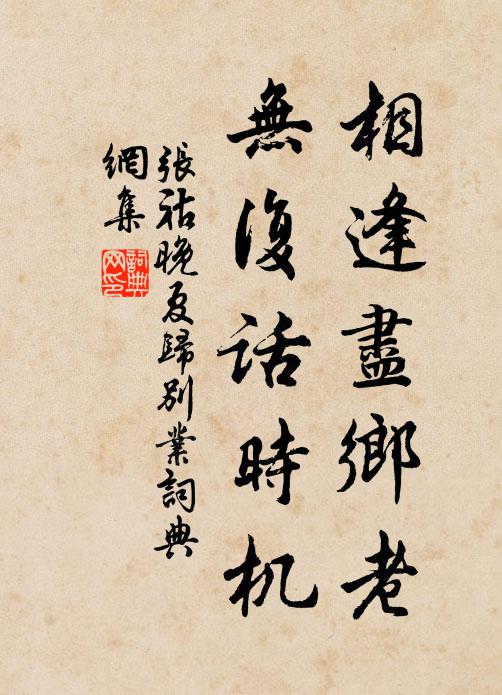 相逢盡鄉老
無復話時机
張祜晚夏歸別業詞典
網集
詞典
网印